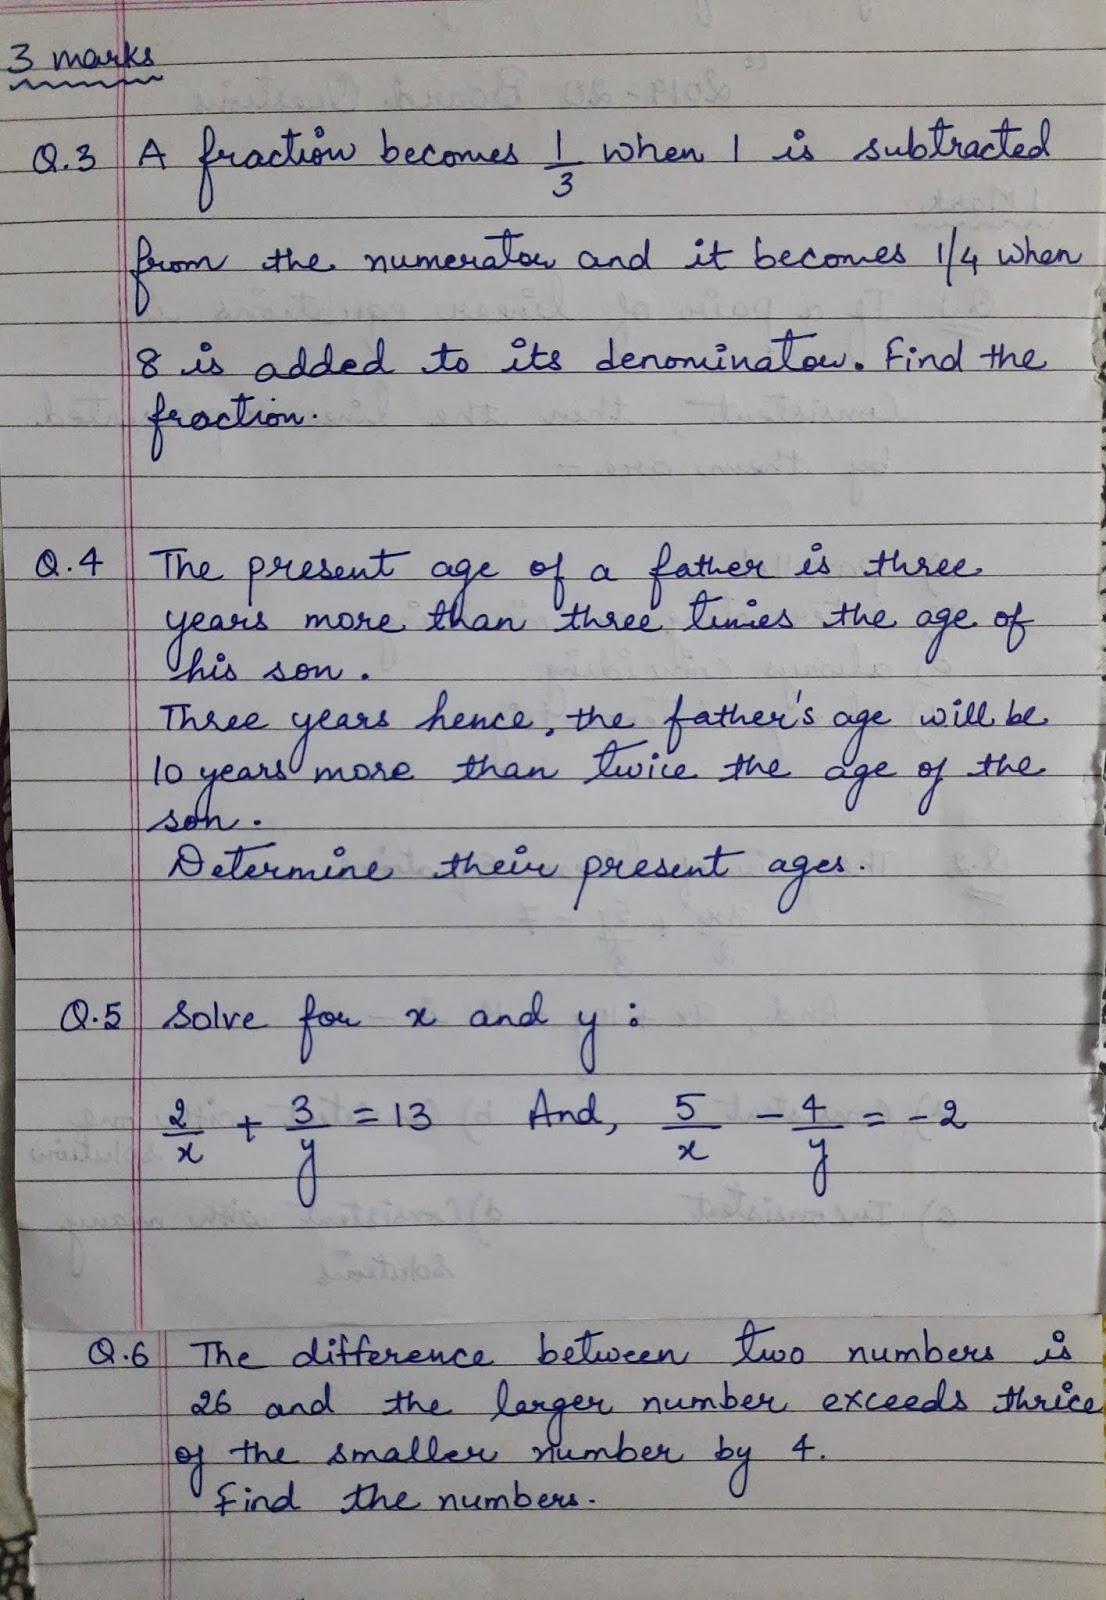 3 marks
Q.3 A fraction becomes 1/3 when 1 is subtracted
from the numerator and it becomes 1/4 when
8 is added to its denominator. Find the
fraction.
Q.4 The present age of a father is three
years more than three times the age of
his son.
Three years hence, the father's age will be
10 years more than twice the age of the
son.
Determine their present ages.
Q.5 Solve for x and y :
2/x + 3/y = 13 And, 5/x - 4/y = -2
Q.6 The difference between two numbers is
26 and the larger number exceeds thrice
of the smaller number by 4.
Find the numbers.